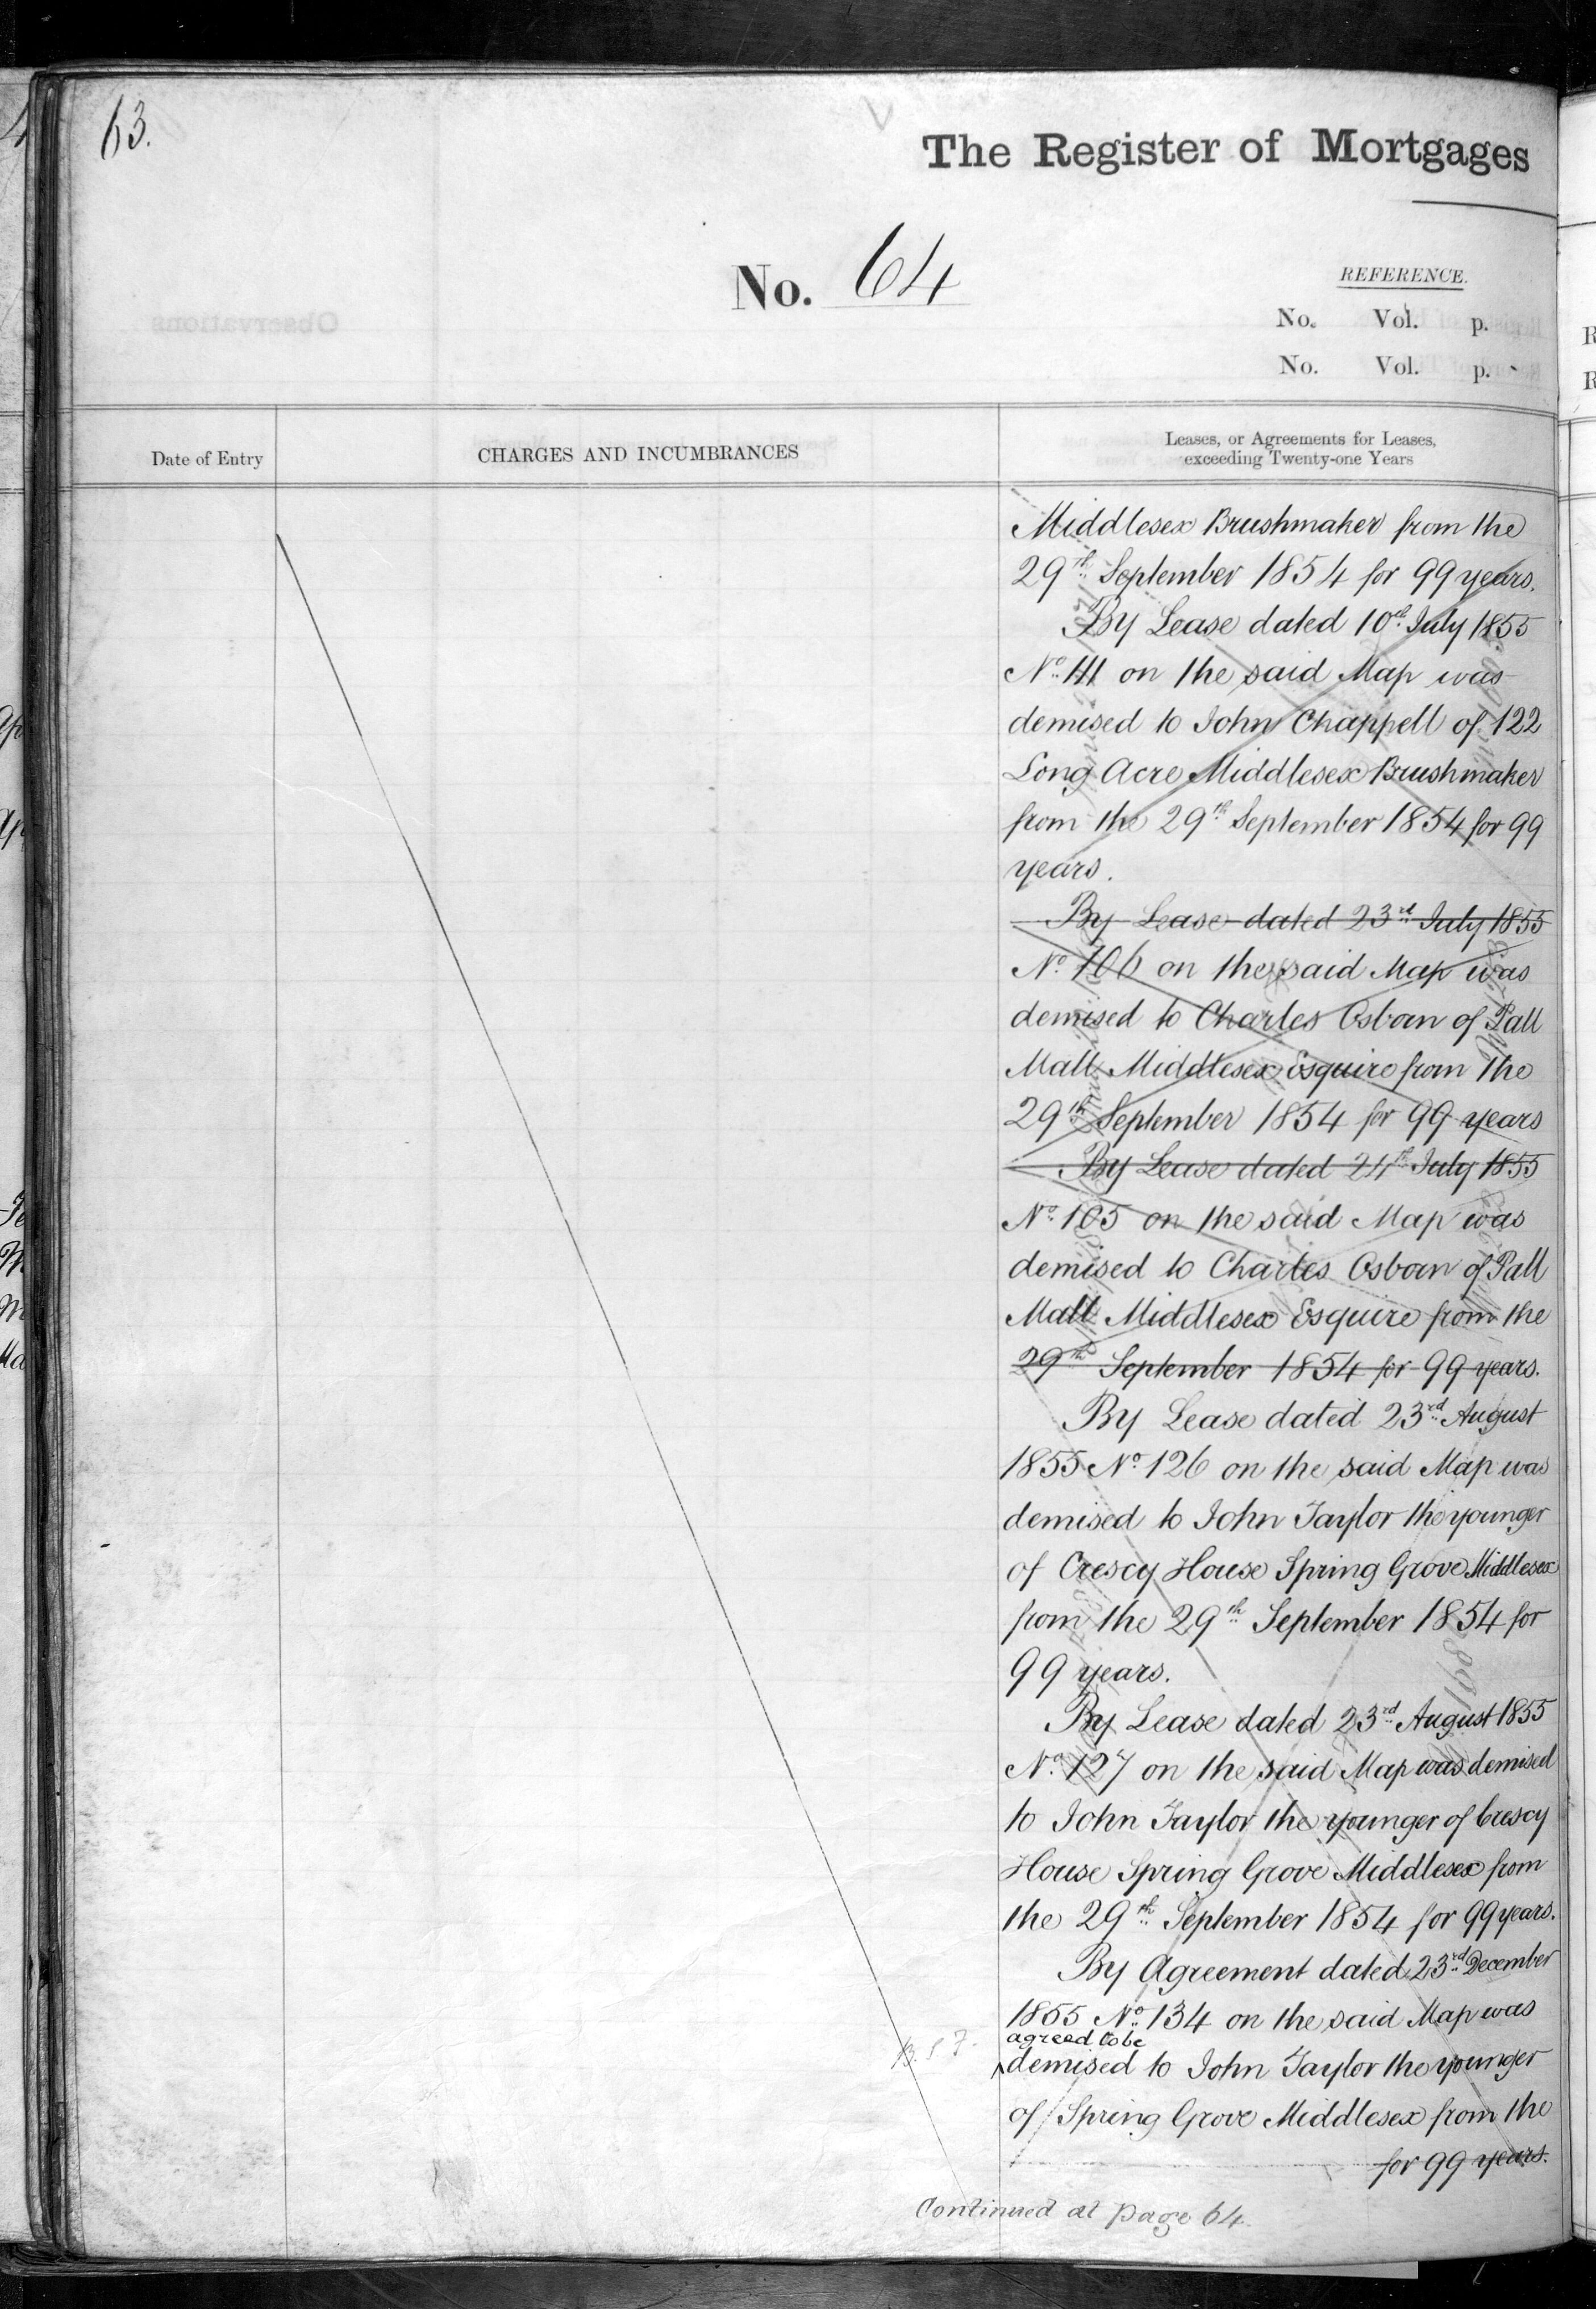 63.
The Register of Mortgages
No. 64
REFERENCE.
No. Vol. p.
No. Vol. p.
Date of Entry
CHARGES AND INCUMBRANCES
Leases, or Agreements for Leases,
exceeding Twenty-one Years
Middlesex Brushmaker from the
29th September 1854 for 99 years.
By Lease dated 10th July 1855
No. 111 on the said Map was
demised to John Chappell of 122
Long Acre Middlesex Brushmaker
from the 29th September 1854 for 99
years.
By Lease dated 23rd July 1855
No. 106 on the said Map was
demised to Charles Osborn of Pall
Mall Middlesex Esquire from the
29th September 1854 for 99 years
By Lease dated 24th July 1855
No. 105 on the said Map was
demised to Charles Osborn of Pall
Mall Middlesex Esquire from the
29th September 1854 for 99 years.
By Lease dated 23rd August
1855 No. 126 on the said Map was
demised to John Taylor the younger
of Crescy House Spring Grove Middlesex
from the 29th September 1854 for
99 years.
By Lease dated 23rd August 1855
No. 127 on the said Map was demised
to John Taylor the younger of Crescy
House Spring Grove Middlesex from
the 29th September 1854 for 99 years.
By Agreement dated 23rd December
1855 No. 134 on the said Map was
agreed to be
demised to John Taylor the younger
of Spring Grove Middlesex from the
for 99 years.
Continued at page 64